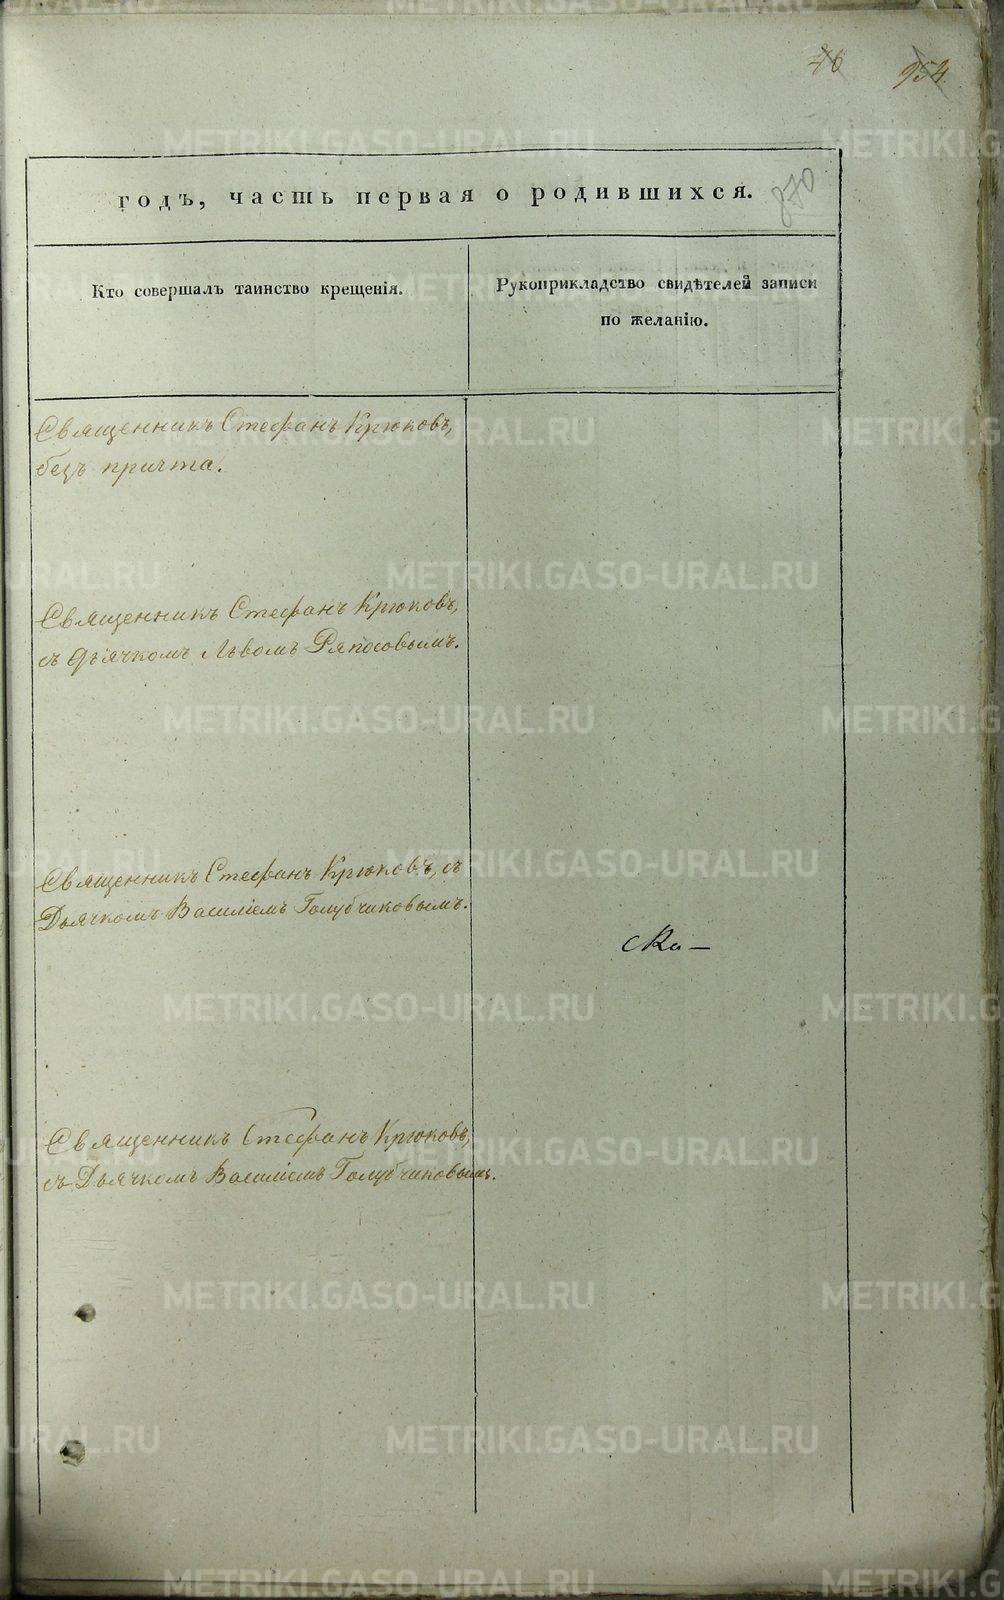 46 954
870
годъ, часть первая о родившихся.
Кто совершалъ таинство крещенія.
Рукоприкладство свидѣтелей записи
по желанію.
Священникъ Стефанъ Крюковъ,
безъ причта.
Священникъ Стефанъ Крюковъ,
съ дьячкомъ Львомъ Ряпосовымъ.
Священникъ Стефанъ Крюковъ, съ
Дьячкомъ Василіемъ Голубчиковымъ.
Священникъ Стефанъ Крюковъ,
съ Дьячкомъ Василіемъ Голубчиковымъ.
METRIKI.GASO-URAL.RU